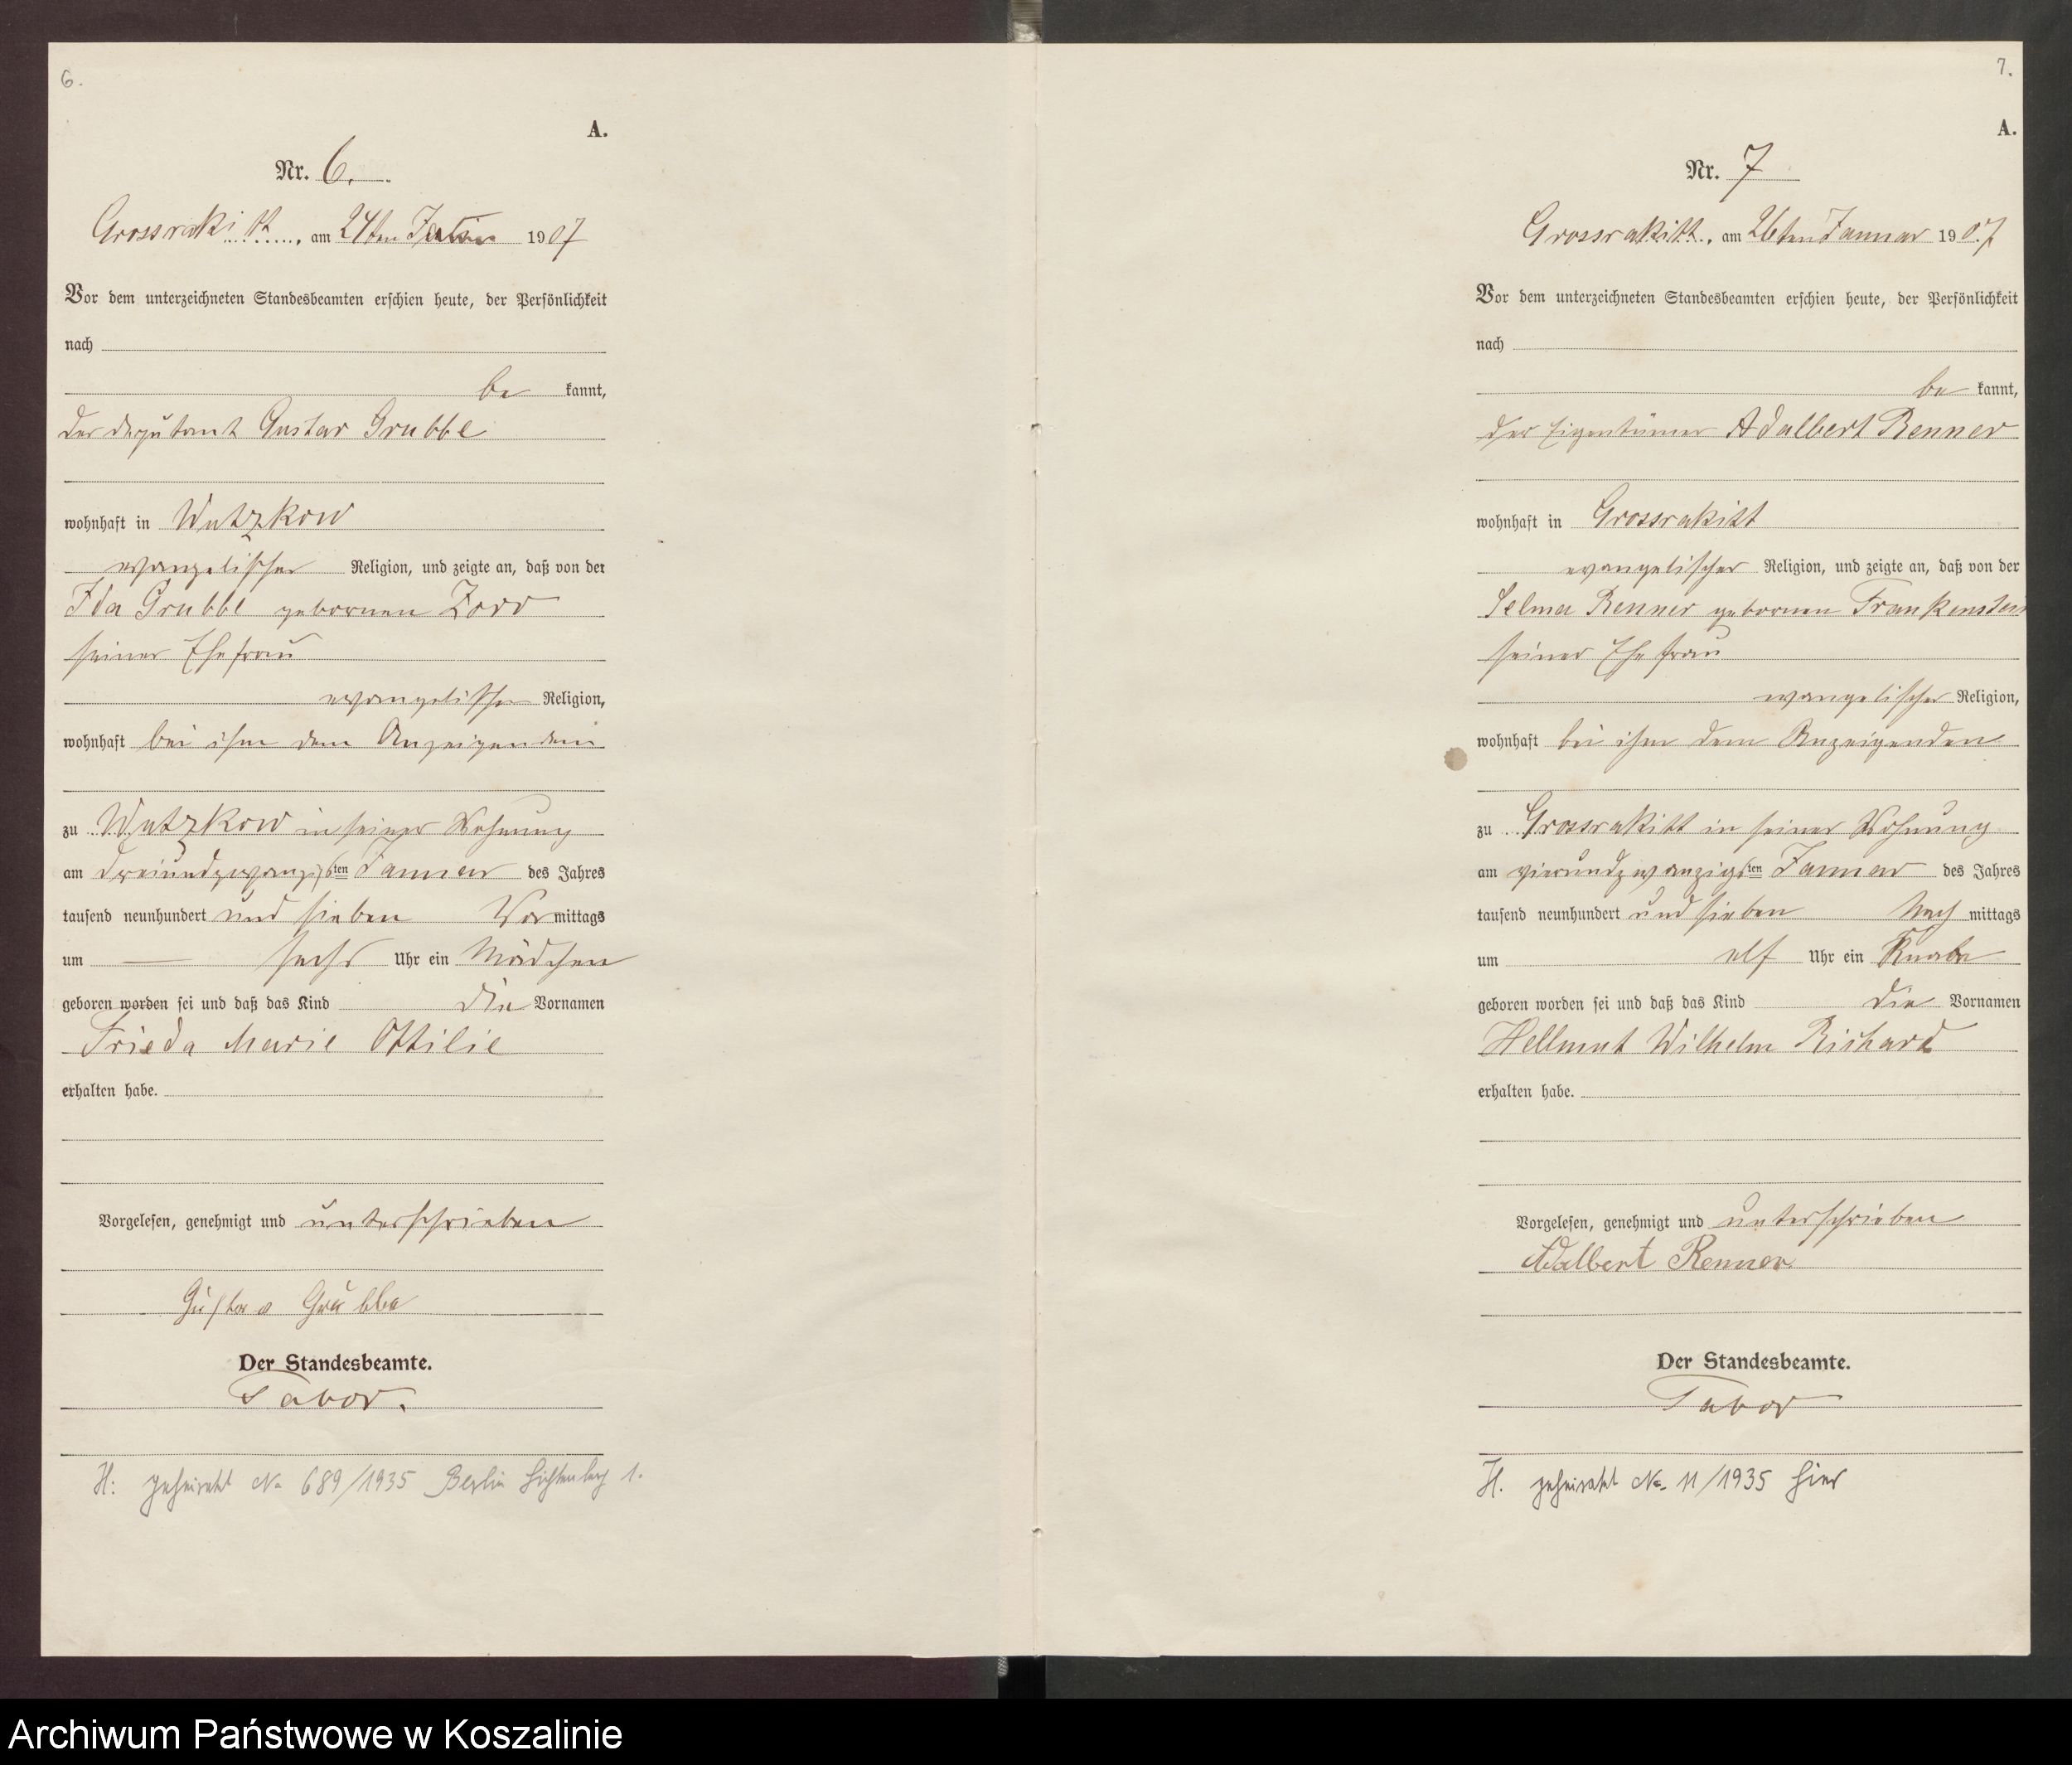 6.
A.
Nr. 6.
Grossrakitt, am 24ten Januar 1907
Vor dem unterzeichneten Standesbeamten erschien heute, der Persönlichkeit
nach
be kannt,
der Deputant Gustav Grubbe
wohnhaft in Wutzkow
evangelischer Religion, und zeigte an, daß von der
Ida Grubbe gebornen Zorr
seiner Ehefrau
evangelischer Religion,
wohnhaft bei ihm dem Anzeigenden
zu Wutzkow in seiner Wohnung
am dreiundzwanzigsten Januar des Jahres
tausend neunhundert und sieben Vormittags
um sechs Uhr ein Mädchen
geboren worden sei und daß das Kind die Vornamen
Frieda Marie Ottilie
erhalten habe.
Vorgelesen, genehmigt und unterschrieben
Gustav Grubbe
Der Standesbeamte.
Tabor.
H: geheiratet No 689/1935 Berlin Lichtenberg 1.
7.
A.
Nr. 7
Grossrakitt, am 26ten Januar 1907
Vor dem unterzeichneten Standesbeamten erschien heute, der Persönlichkeit
nach
be kannt,
der Eigentümer Adalbert Renner
wohnhaft in Grossrakitt
evangelischer Religion, und zeigte an, daß von der
Selma Renner gebornen Frankenstein
seiner Ehefrau
evangelischer Religion,
wohnhaft bei ihm dem Anzeigenden
zu Grossrakitt in seiner Wohnung
am vierundzwanzigsten Januar des Jahres
tausend neunhundert und sieben Nachmittags
um elf Uhr ein Knabe
geboren worden sei und daß das Kind die Vornamen
Hellmut Wilhelm Richard
erhalten habe.
Vorgelesen, genehmigt und unterschrieben
Adalbert Renner
Der Standesbeamte.
Tabor
H. geheiratet No. 11/1935 hier
Archiwum Państwowe w Koszalinie